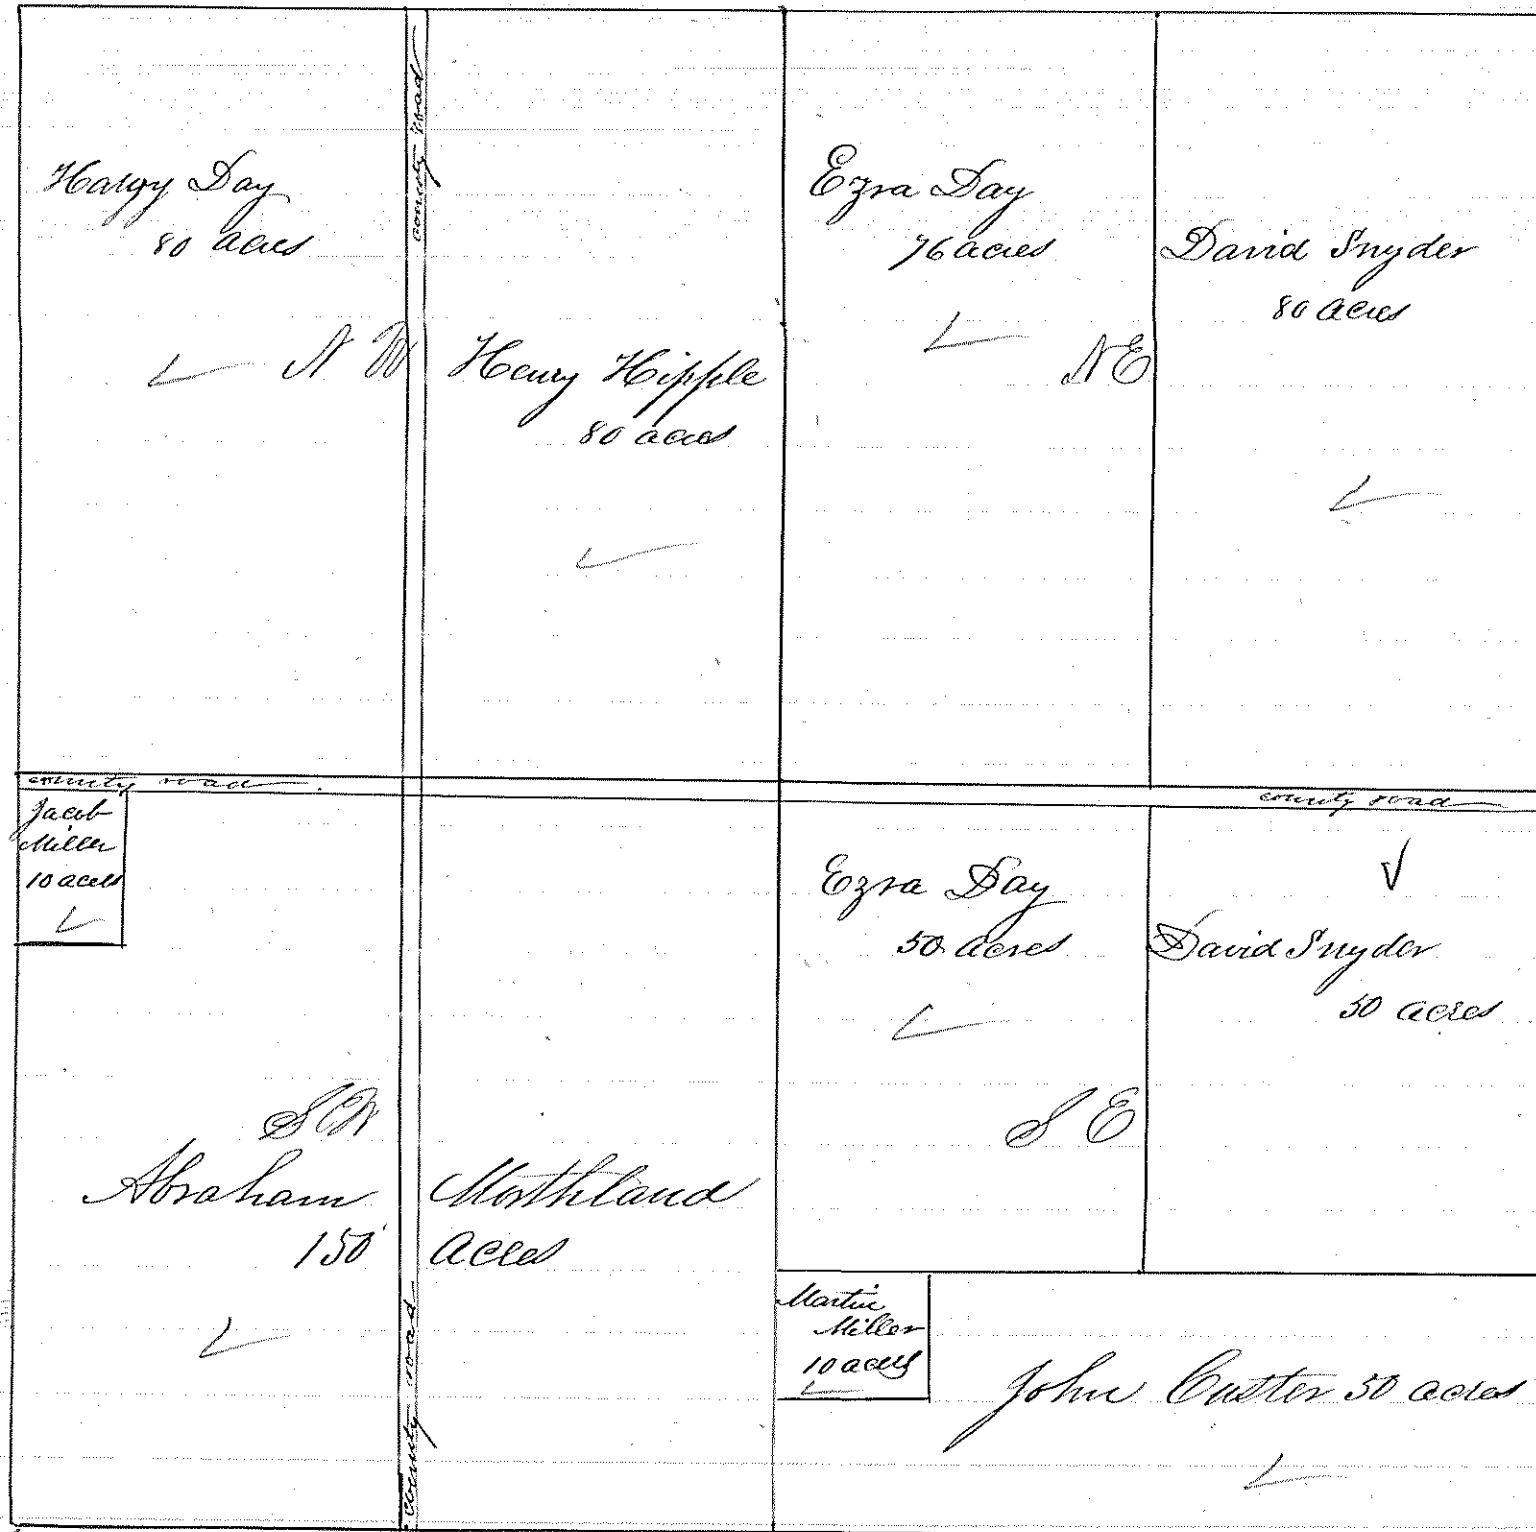 county road
Hargy Day
80 acres
N W
Henry Hipple
80 acres
Ezra Day
76 acres
N E
David Snyder
80 acres
county road
county road
Jacob
Miller
10 acres
S W
Abraham Morthland
150 acres
county road
Ezra Day
50 acres
S E
David Snyder
50 acres
Martin
Miller
10 acres
John Custer 50 acres